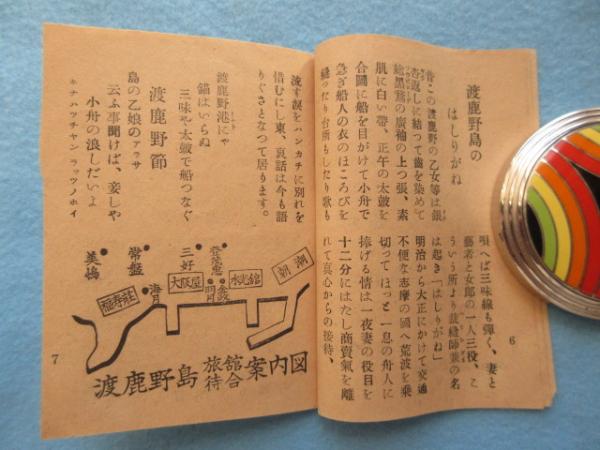 渡鹿野島の
はしりがね
昔この渡鹿野の乙女等は銀
杏返しに結つて齒を染めて
絵黒繻の廣袖の上つ張、素
肌に白い帶、正午の太皷を
合圖に船を目がけて小舟で
急ぎ船人の衣のほころびを
縫つたり台所もしたり歌も
唄へば三味線も彈く、妻と
藝者と女郎の一人三役、こ
ういう所より裁縫師兼の名
は起き「はしりがね」
明治から大正にかけて交通
不便な志摩の國へ荒波を乗
切つてほつと一息の舟人に
捧げる情は一夜妻の役目を
十二分にはたし商賣氣を離
れて真心からの接待、
6
流す涙をハンカチに別れを
惜むにし東、哀話は今も語
りぐさとなつて居ります。
渡鹿野港にや
錨はいらぬ
三味や太皷で船つなぐ
渡鹿野節
島の乙娘のアラサ
云ふ事聞けば、妾しや
小舟の浪しだいよ
キナハツチヤン ラツツノホイ
朝潮
水光館
登茂恵
明月
三好
大阪屋
海月
常盤
福寿荘
美鳩
渡鹿野島旅館待合案内図
7